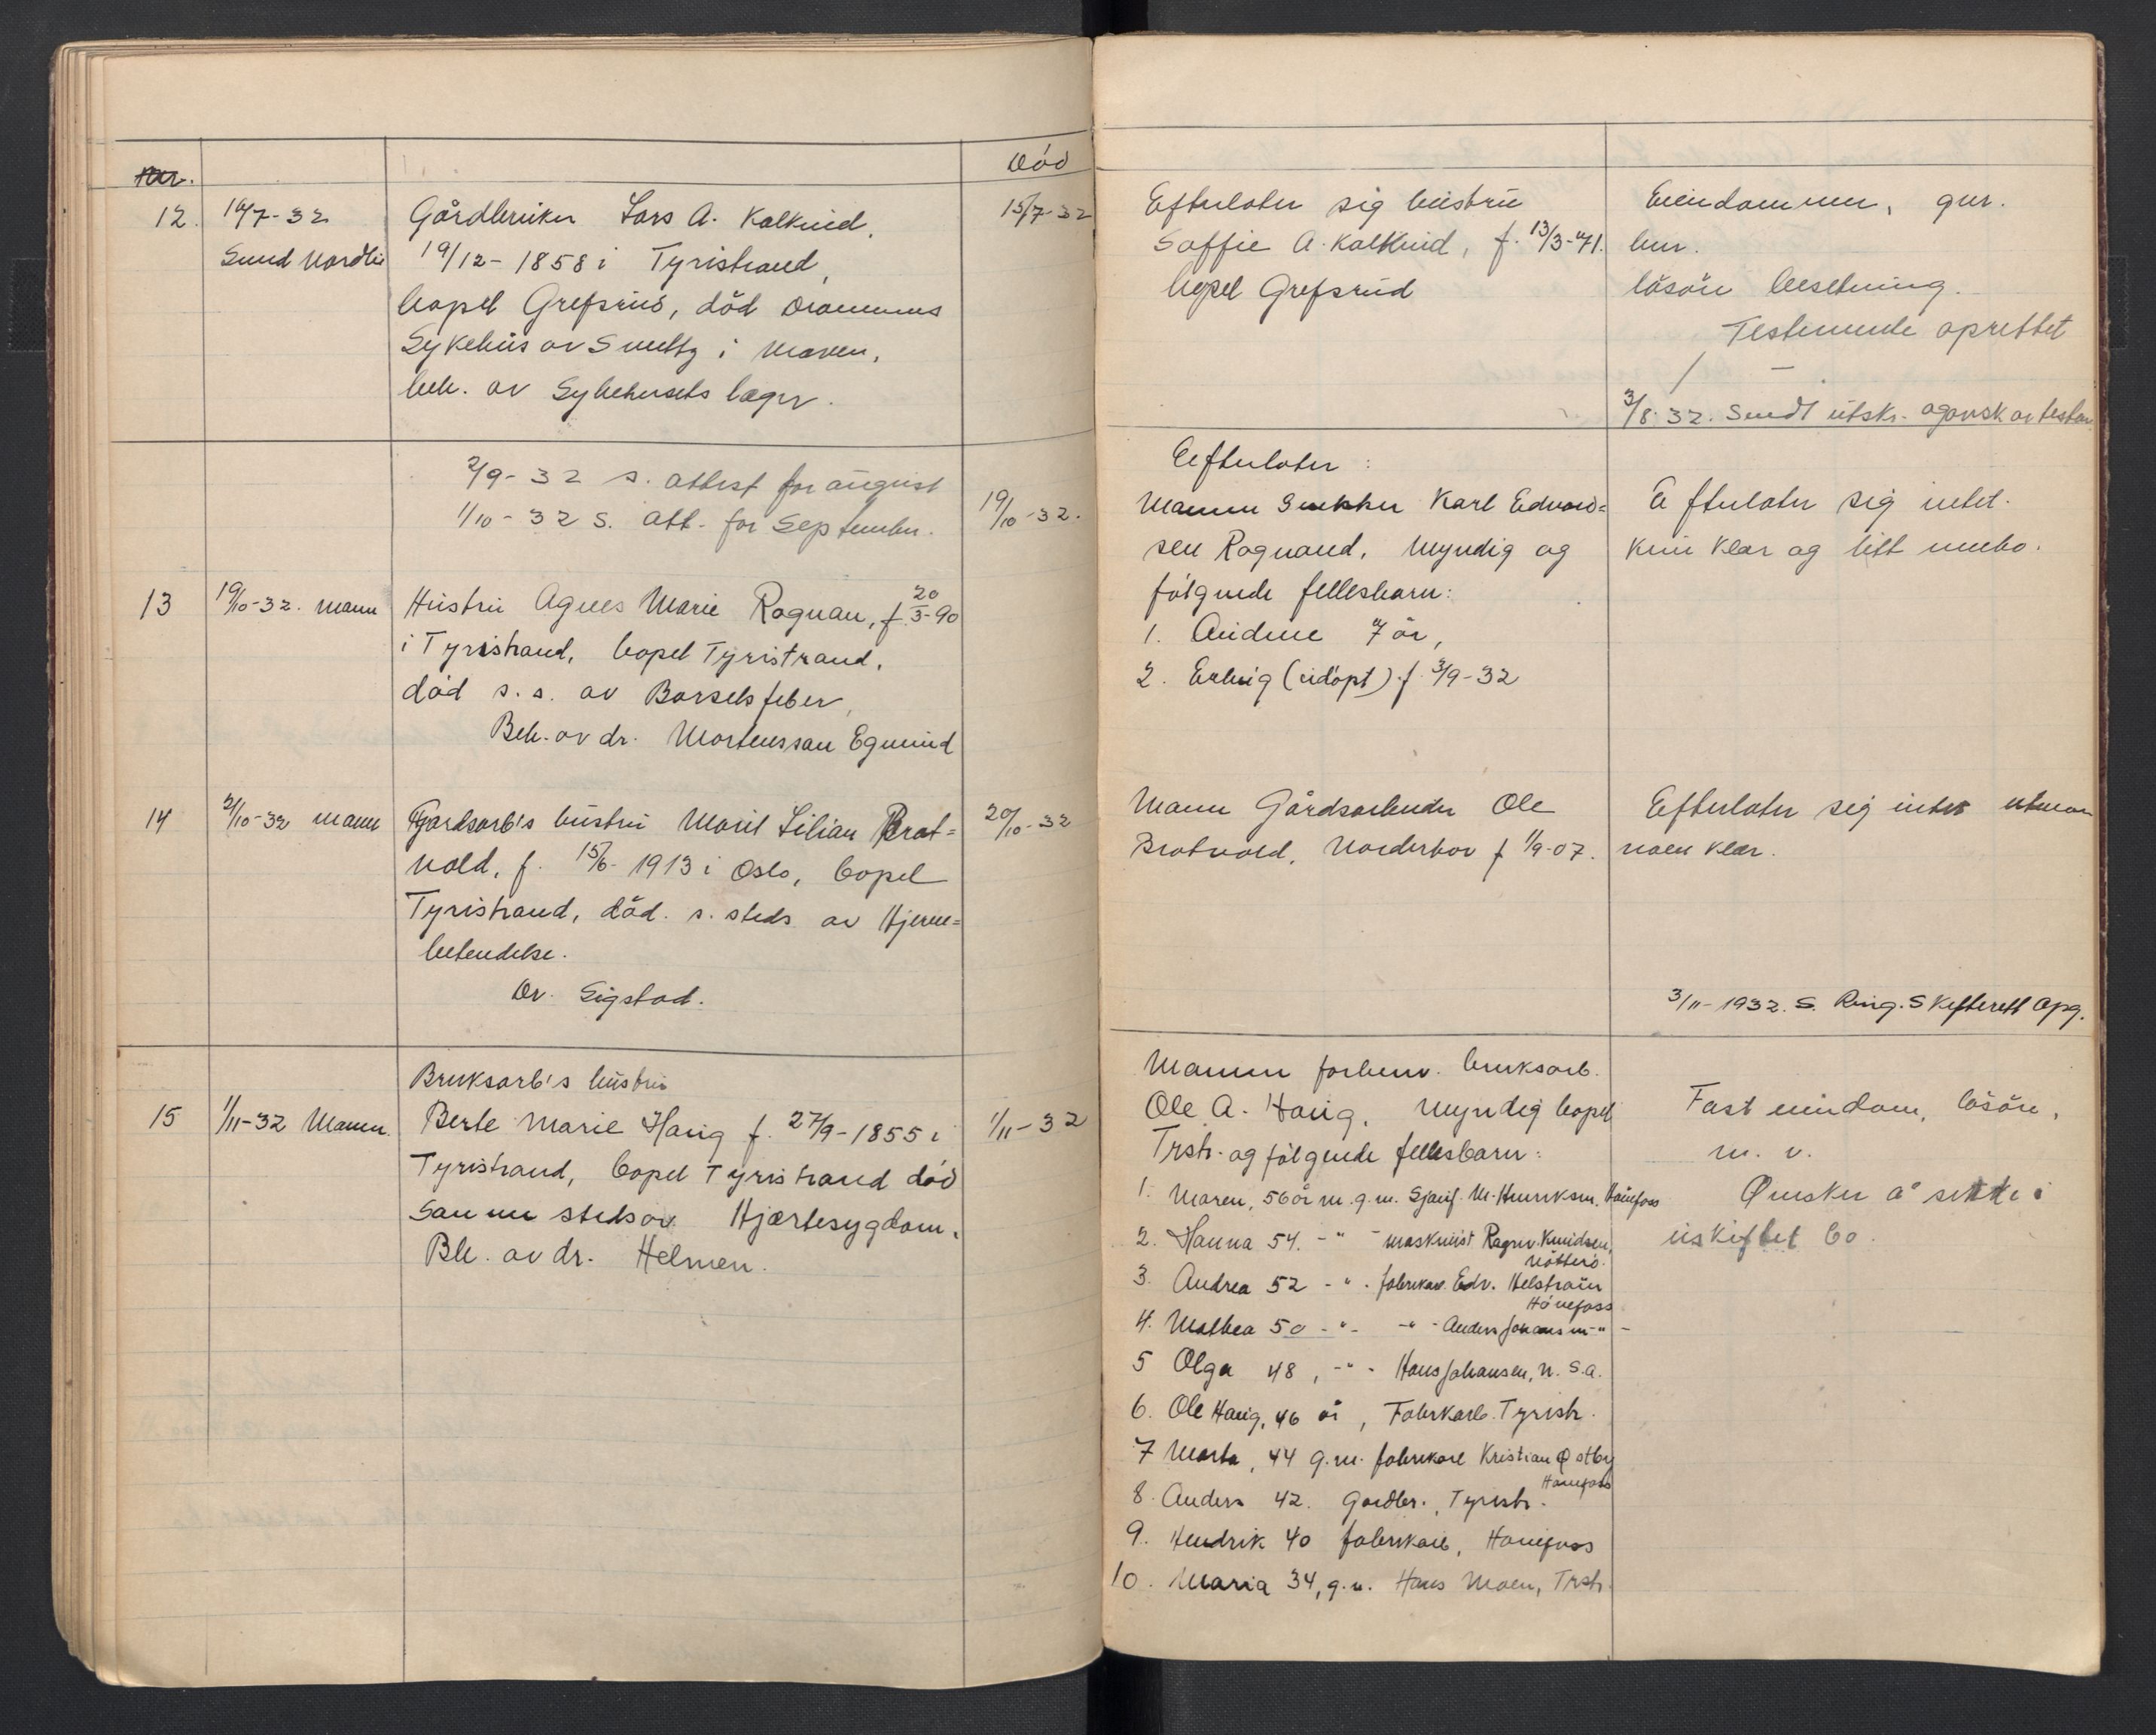 Nr.
Død
12. 16/7-32 Gårdbruker Lars A. Kalkuid, 15/7-32
Sund Nordlie 19/12-1858 i Tyristrand,
bopel Grefsrud, død Drammens
Sykehus av Smeltz i Maven,
beh. av Sykehusets læger.
2/9-32 s. attest for august
1/10-32 s. att. for September.
13 19/10-32. Mann Hustru Agnes Marie Rognan, f. 20/3-90 19/10-32.
i Tyristrand, bopel Tyristrand,
død s. s. av Barselsfeber,
Beh. av dr. Mortensson Egnund
14 21/10-32 Mann Gardsarb's hustru Marit Lilian Brat= 20/10-32
vold, f. 15/6-1913 i Oslo, bopel
Tyristrand, død. s. steds av Hjerne=
betendelse.
Dr. Sigstad.
Bruksarb's hustru
15 1/11-32 Mannen. Berte Marie Haug f. 27/9-1855 i 1/11-32
Tyristrand, bopel Tyristrand død
samme sted av Hjertesygdom.
Beh. av dr. Helmen.
Efterlater sig hustru
Soffie A. Kalkuid, f. 13/3-71.
bopel Grefsrud
Eiendommen, gnr.
bnr.
løsøre besetning.
Testemente oprettet
/ —
3/8-32. Sendt utskr. avgavsk av testam.
Efterlater:
Mannen Snekker Karl Edvard=
sen Rognand, Myndig og
følgende fellesbarn:
1. Audine 7 år,
2. Erling (udøpt) f. 3/9-32
Efterlater sig intet.
kun klær og litt innbo.
Mann Gårdsarbeider Ole
Bratvold, Norderhov f 1/9-07.
Efterlater sig intet utenom
noen klær.
3/11-1932. S. Ring. Skifterett Opg.
Mannen forhenv. bruksarb.
Ole A. Haug, Myndig bopel
Trstr. og følgende fellesbarn:
1. Maren, 56 år m. g.m. Sjauf. M. Henriksen. Hønefoss
2. Hanna 54. -"- maskinist Ragnv. Knudsen,
Nøtterø.
3. Andrea 52 -"- fabrikarb. Edv. Helstraun
Hønefoss
4. Mathea 50 -"- -"- Anders Johansen -"-
5 Olga 48, -"- Hans Johansen, N. S.a.
6. Ole Haug, 46 år, Fabrkarb. Tyristr.
7 Marta, 44 g.m. fabrikarb Kristian Østby
Hønefoss
8. Anders 42. Gardbr., Tyristr.
9. Hendrik 40 fabrikarb, Hønefoss
10. Maria 34, g.m. Hans Moen, Trstr.
Fast eiendom, løsøre,
m. v.
Ønsker å sitte i
uskiftet bo.